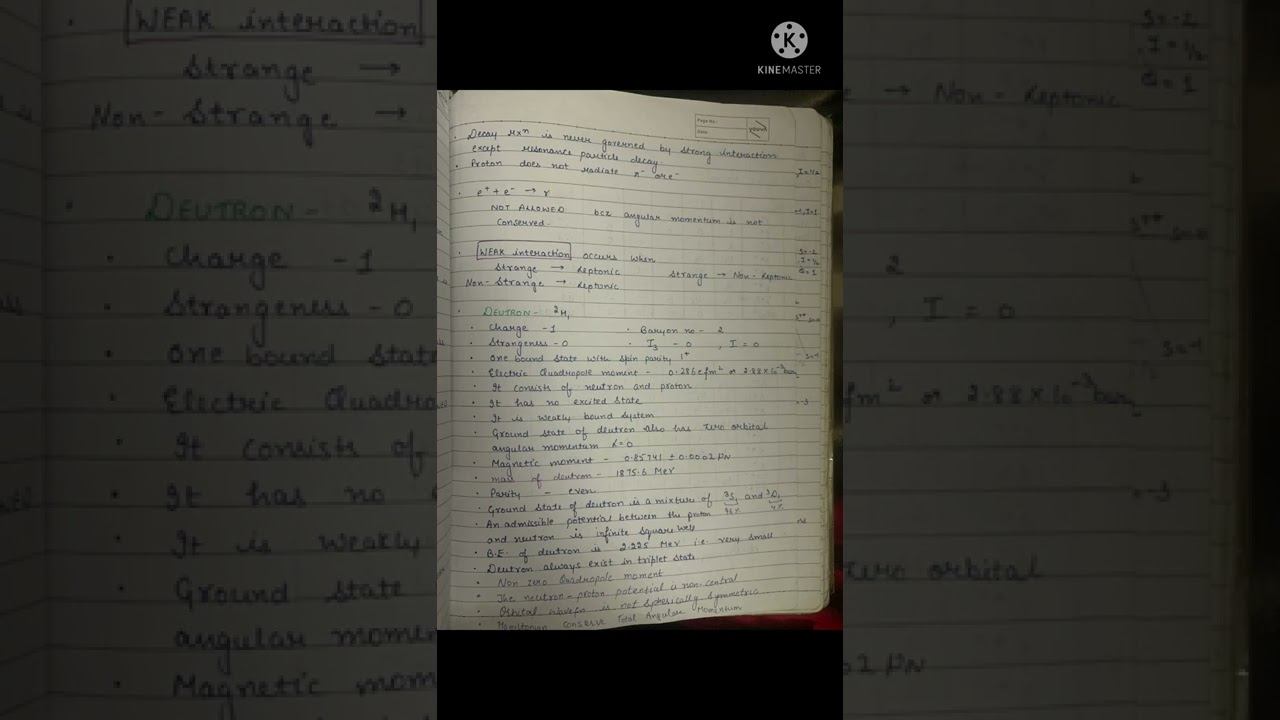 KINEMASTER
Page No.:
Date:
YOUVA
• Decay rxn is never governed by strong interaction
except resonance particle decay.
• Proton does not radiate π- or e-
• e+ + e- → γ
NOT ALLOWED bcz angular momentum is not
conserved.
• WEAK interaction occurs when
Strange → Leptonic Strange → Non-Leptonic
Non-Strange → Leptonic
• DEUTRON - ²H₁
• Charge - 1 • Baryon no - 2
• Strangeness - 0 • I₃ - 0 , I = 0
• One bound state with spin parity 1+
• Electric Quadropole moment - 0.286 efm² or 2.88 × 10⁻³ barn
• It consists of neutron and proton
• It has no excited state
• It is weakly bound system
• Ground state of deutron also has zero orbital
angular momentum L=0
• Magnetic moment - 0.85741 ± 0.0002 μN
• mass of deutron - 1875.6 MeV
• Parity - even
• Ground state of deutron is a mixture of ³S₁ and ³D₁
96% 4%
• An admissible potential between the proton
and neutron is infinite square well
• B.E. of deutron is 2.225 MeV i.e. very small
• Deutron always exist in triplet state
• Non zero Quadropole moment
• The neutron-proton potential is non-central
• Orbital wavefn is not spherically symmetric
• Hamiltonian conserve Total Angular Momentum